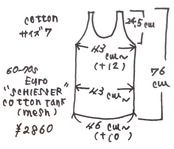 cotton
サイズ 7
24.5 cm
43 cm~
(+12)
76 cm
60-70s
Euro
"SCHIESSER"
cotton tank
(mesh)
¥2860
43 cm~
46 cm~
(+10)